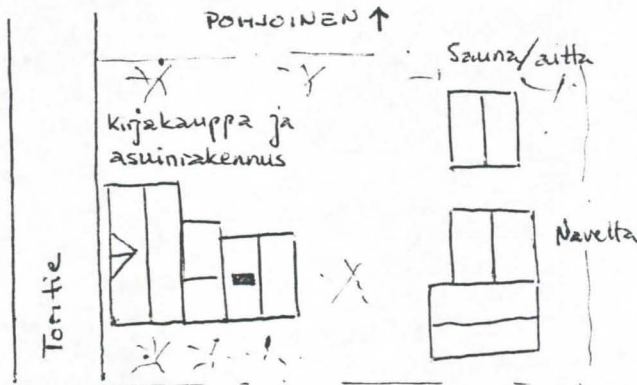 POHJOINEN ↑
Sauna/aitta
Kirjakauppa ja
asuinrakennus
Navetta
Toritie